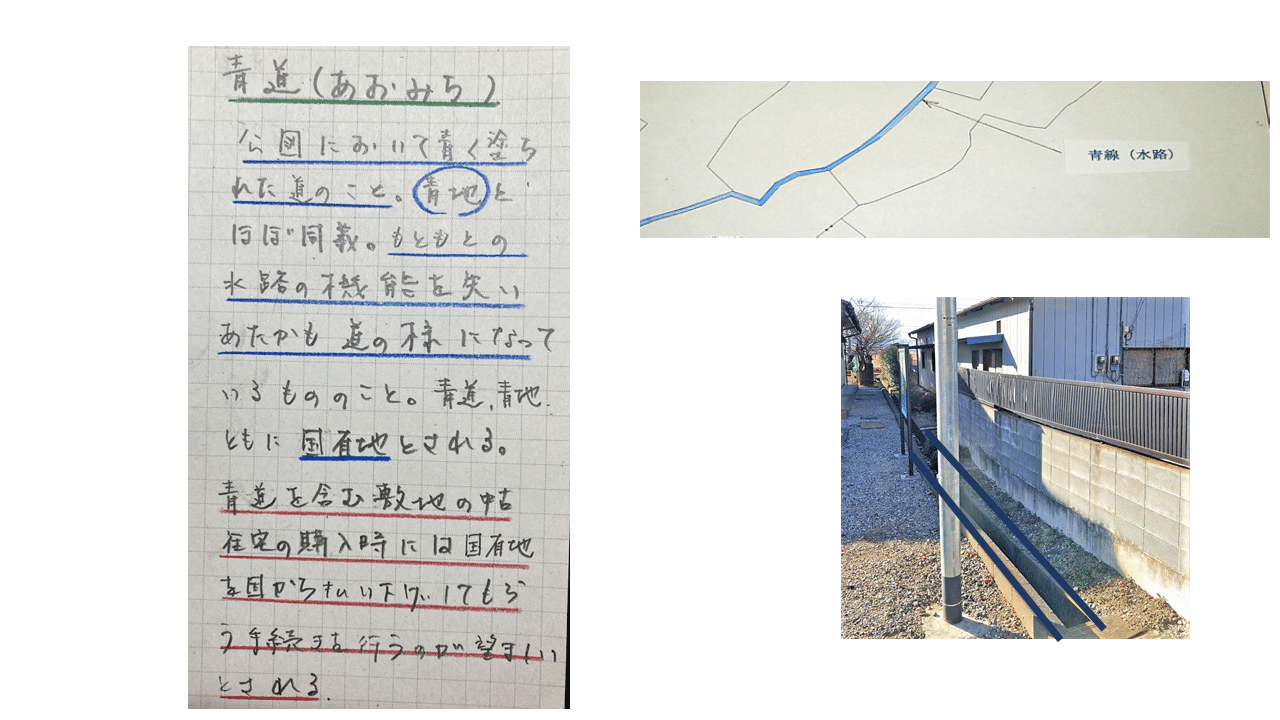 青道(あおみち)
公図において青く塗ら
れた道のこと。青地と
ほぼ同義。もともとの
水路の機能を失い
あたかも道の様になって
いるもののこと。青道、青地
ともに国有地とされる。
青道を含む敷地の中古
住宅の購入時には国有地
を国から払い下げしてもら
う手続きを行うのが望ましい
とされる.
青線（水路）